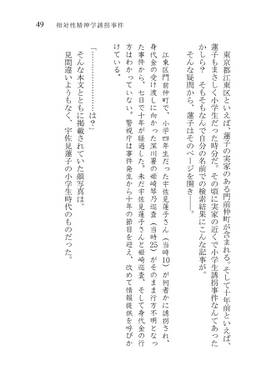 49　相対性精神学誘拐事件
　東京都江東区といえば、蓮子の実家のある門前仲町が含まれる。そして十年前といえば、
蓮子もまさしく小学生だった時分だ。その頃に実家の近くで小学生誘拐事件なんてあった
かしら？　そもそもなんで自分の名前での検索結果にこんな記事が。
　そんな疑問から、蓮子はそのページを開き――。
　江東区門前仲町で、小学四年生だった宇佐見蓮子さん（当時10）が何者かに誘拐され、
身代金の受け渡しに向かった深川署の姫崎琴乃巡査（当時25）がそのまま行方不明となっ
た事件から、七日で十年が経過した。未だ宇佐見蓮子さんと姫崎巡査、そして身代金の行
方はわかっていない。警視庁は事件発生から十年の節目を迎え、改めて情報提供を呼びか
けている。
「…………は？」
　そんな本文とともに掲載されていた顔写真は、
　見間違いようもなく、宇佐見蓮子の小学生時代のものだった。